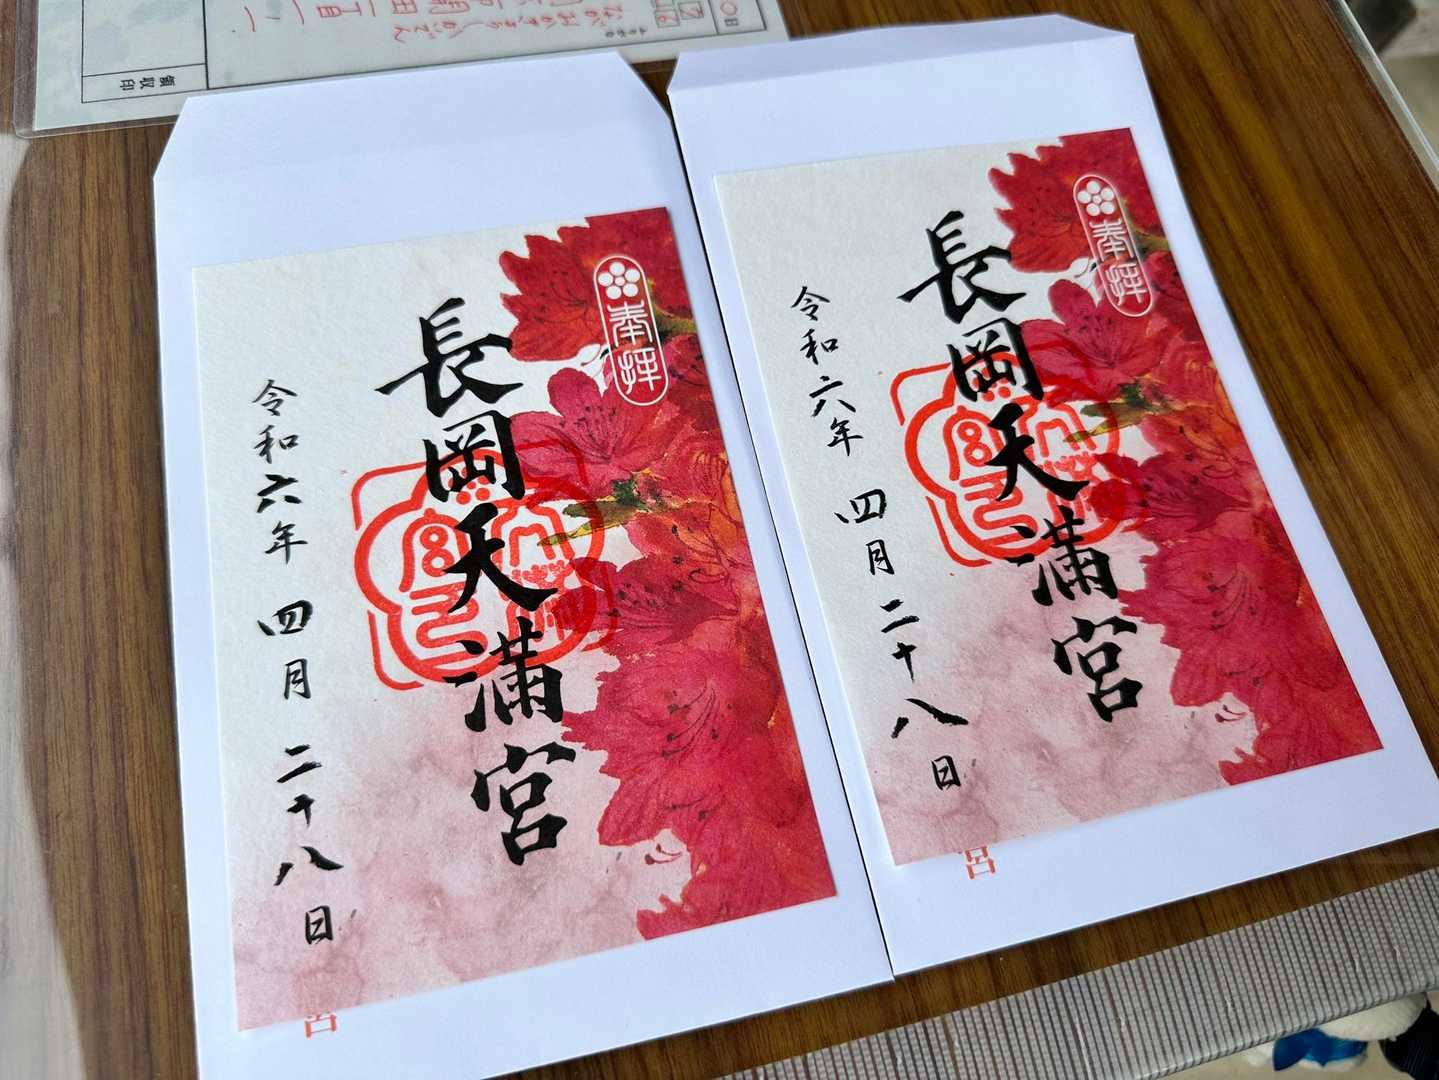 領収印
奉拝
長岡天満宮
令和六年 四月 二十八日
宮
奉拝
長岡天満宮
令和六年 四月 二十八日
宮